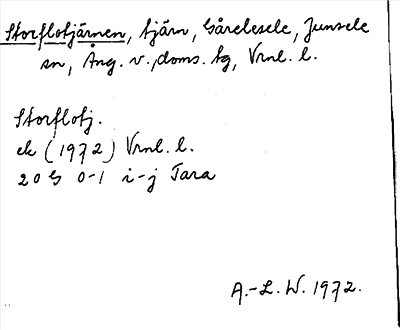 Storflotjärnen, tjärn, Gårelesele, Junsele
sn, Ång. v., doms. tg, Vrnl. l.
Storflotj.
ek (1972) Vrnl. l.
20 G 0-1 i-j Tara
A.-L. W. 1972.